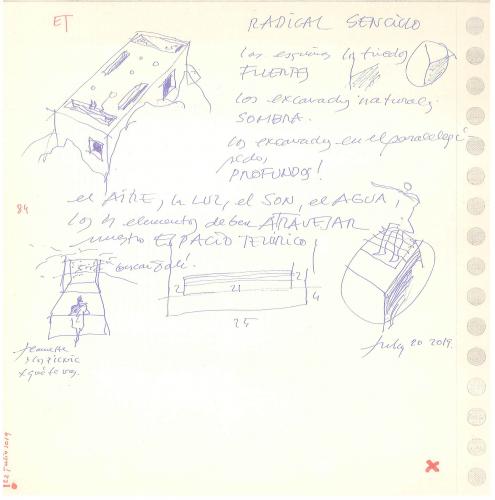 ET
RADICAL SENCILLO
FUERTES
los excavados naturales.
SOMBRA.
los excavados en el paralelepí-
pedo,
PROFUNDOS!
el AIRE, la LUZ, el SON, el AGUA,
84
los elementos deben ATRAVESAR
nuestro ESPACIO TELÚRICO
2 21 2
4
25
12
July 20 2019.
22 Julio 2019